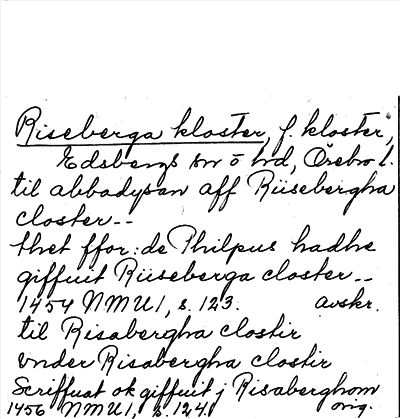 Riseberga kloster, f. kloster,
Edsbergs sn o hd, Örebro l.
til abbadysan aff Riisebergha
closter--
thet ffor:de Philpus hadhe
giffuit Riiseberga closter--
1454 NMU1, s. 123. avskr.
til Risabergha clostir
vnder Risabergha clostir
Scriffuat ok giffuit j Risaberghom
1456 NMU1, s. 124. orig.